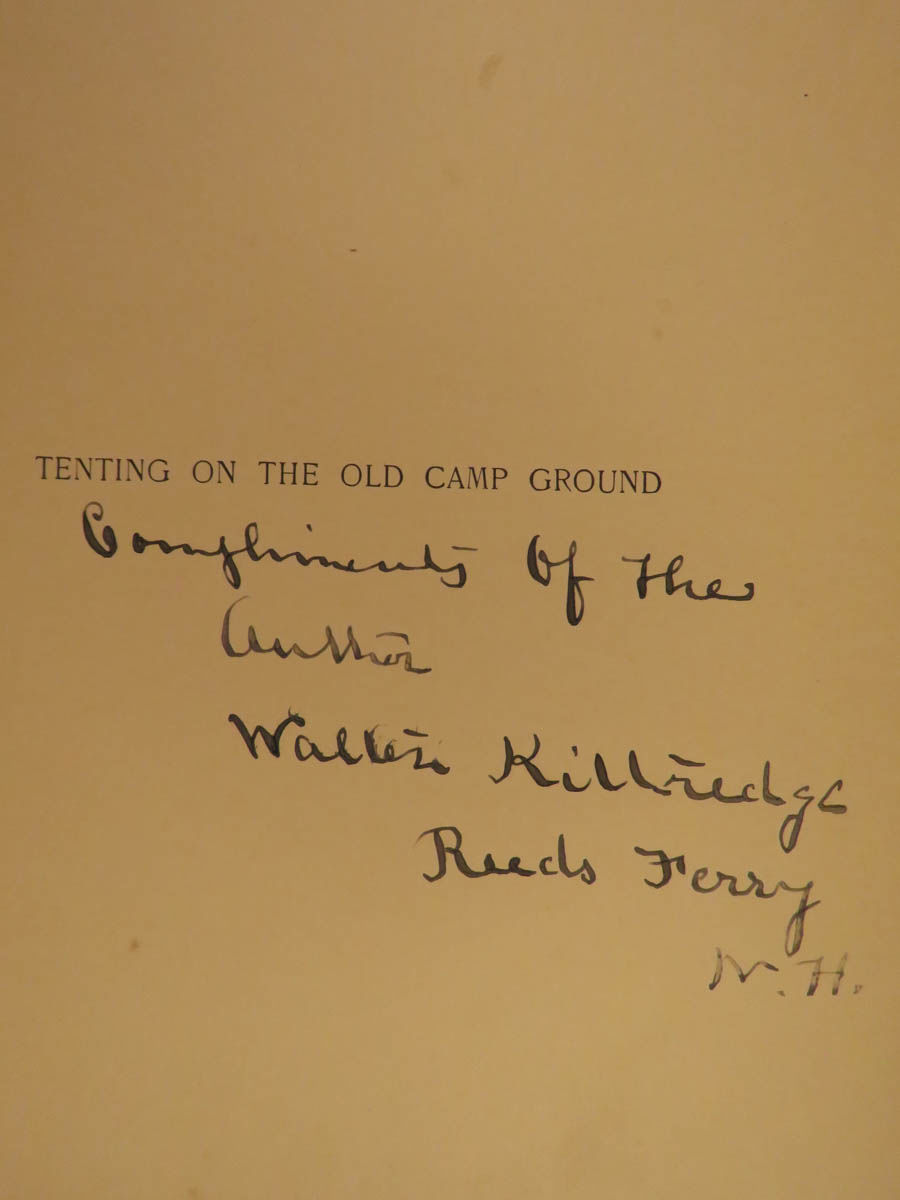 TENTING ON THE OLD CAMP GROUND
Compliments Of The
Author
Walter Kittredge
Reeds Ferry
N. H.